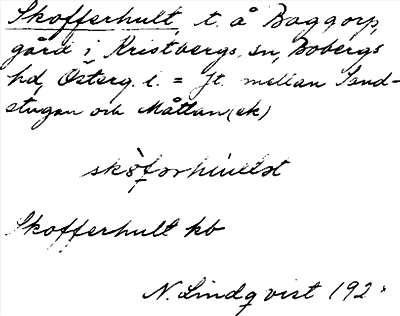 Skofferhult, t. å Baggorp,
gård i Kristbergs sn, Bobergs
hd, Österg. l. = Jt. mellan Sand-
stugan och Måttan (ek)
Skofferhult kb
N. Lindqvist 192